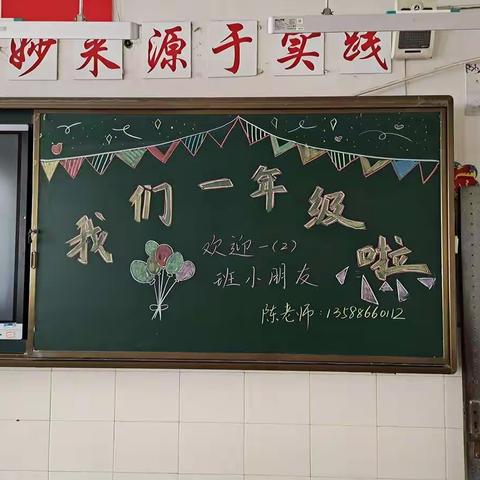 妙来源于实践
我们一年级啦
欢迎一(2)
班小朋友
陈老师:13588660112